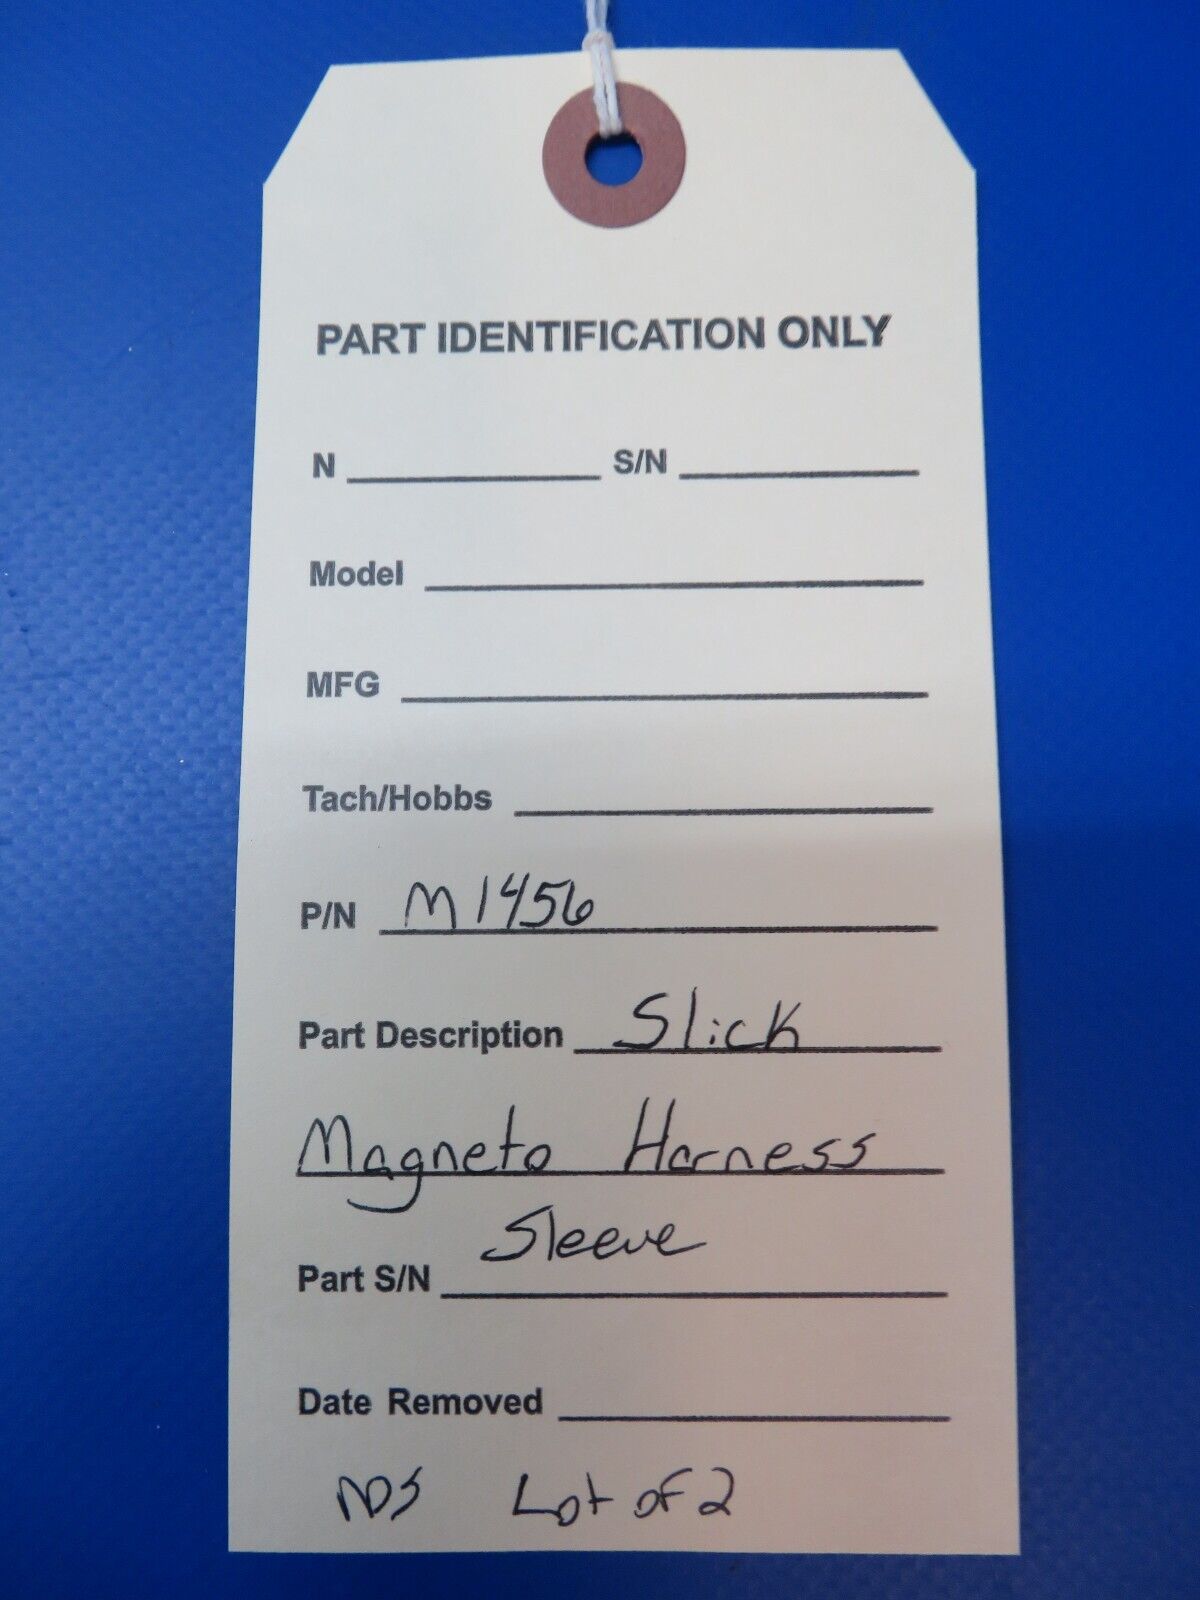 PART IDENTIFICATION ONLY
N S/N
Model
MFG
Tach/Hobbs
P/N M1456
Part Description Slick
Magneto Harness
Sleeve
Part S/N
Date Removed
NOS Lot of 2